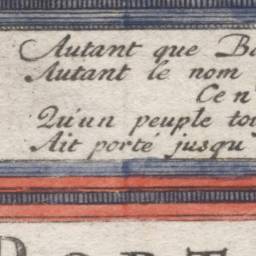 Autant que Ba
Autant le nom
Ce n'
Qu'un peuple tou
Ait porté jusqu
PORT